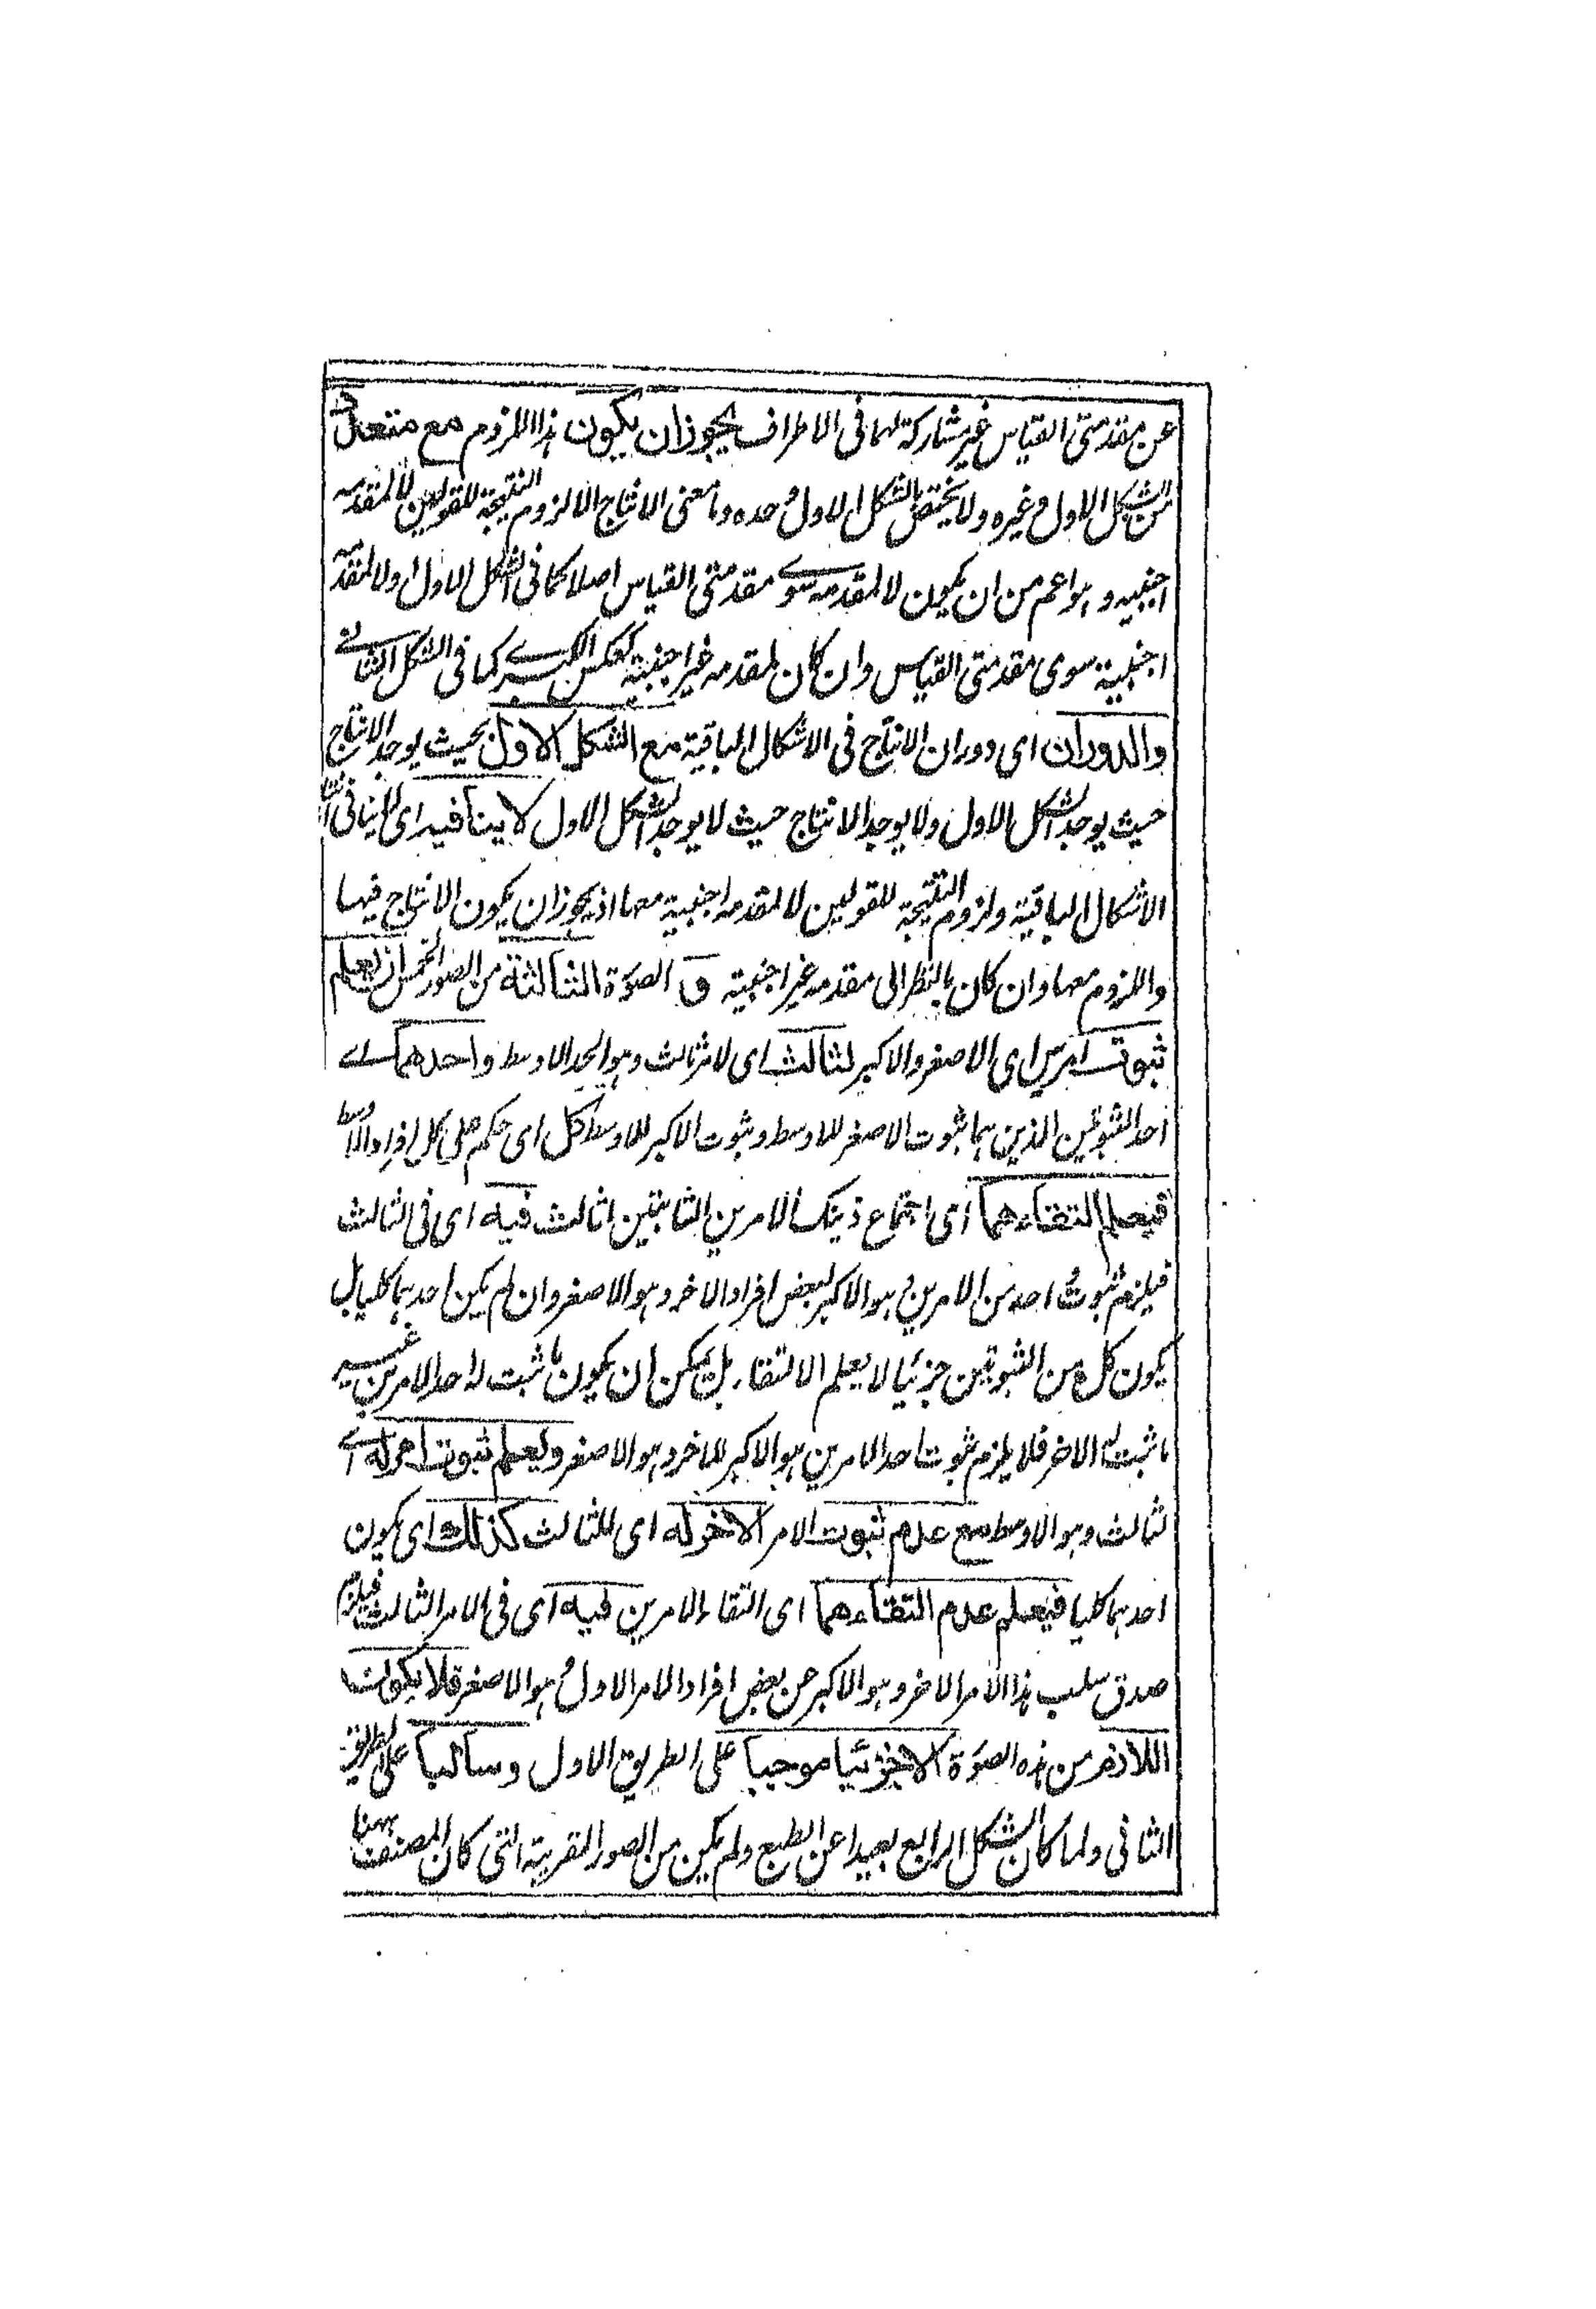 عن مقدمتى القياس غير مشاركة لهما فى الاطراف يجوز ان يكون هذا اللزوم مع متعدد
من الشكل الاول وغيره ولا يختص بالشكل الاول وحده وما معنى الانتاج الا لزوم النتيجة للقولين لا لمقدمه
اجنبيه وهو اعم من ان يكون لا لمقدمه سوى مقدمتى القياس اصلا كما فى الشكل الاول او لا لمقدمه
اجنبية سوى مقدمتى القياس وان كان لمقدمه غير اجنبية كعكس الكبرى كما فى الشكل الثانى
والدوران اى دوران الانتاج فى الاشكال الباقية مع الشكل الاول بحيث يوجد الانتاج
حيث يوجد الشكل الاول ولا يوجد الانتاج حيث لا يوجد الشكل الاول لا ينافيه اى لا ينافى
الاشكال الباقية ولزوم النتيجة للقولين لا لمقدمه اجنبية معها اذ يجوز ان يكون الانتاج فيها
واللزوم معها وان كان بالنظر الى مقدمه غير اجنبية و الصورة الثالثة من الصور الخمس ان يعلم
ثبوت امرين اى الاصغر والاكبر لثالث اى لامر ثالث وهو الحد الاوسط واحدهما اے
احد الثبوتين الذين هما ثبوت الاصغر للاوسط وثبوت الاكبر للاوسط كل اى حكم على كل افراد الاوسط
فيعلم التقاءهما اى اجتماع ذينك الامرين الثابتين لثالث فيه اى فى الثالث
فيلزم ثبوت احد من الامرين وهو الاكبر لبعض افراد الاخر وهو الاصغر وان لم يكن احدهما كليا بل
يكون كل من الثبوتين جزئيا لا يعلم الالتقاء بل يمكن ان يكون ما ثبت له احد الامرين غير
ما ثبت له الاخر فلا يلزم ثبوت احد الامرين هو الاكبر للاخر وهو الاصغر ويعلم ثبوت امر له اے
لثالث وهو الاوسط مع عدم ثبوت الامر الاخر له اى للثالث كذلك اى يكون
احدهما كليا فيعلم عدم التقاءهما اى التقاء الامرين فيه اى فى الامر الثالث فيلزم
صدق سلب هذا الامر الاخر وهو الاكبر عن بعض افراد الامر الاول وهو الاصغر فلا يكون
اللازم من هذه الصورة الا جزئيا موجبا على الطريق الاول وسالبا على الطريق
الثانى ولما كان الشكل الرابع بعيدا عن الطبع ولم يكن من الصور القريبة التى كان المصنف ههنا